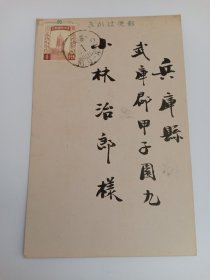 郵便はがき
兵庫縣
武庫郡甲子園九
小林治郎様